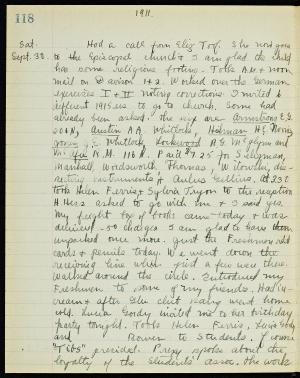 118
1911.
Sat. Had a call from Eliz Tof. She now goes
Sept. 30. to the Episcopal church. I am glad the child
has some religious footing. Took A.M. & noon
mail on Davison 1 & 2. Worked over the German
exercises I & II noting corrections. I invited 6
different 1915 ses to go to church. Some had
already been asked, the six are Armstrong E.G.
Austin A.A. Whitlock, Holman H.
J.E. Whitlock, Lockwood A.G. McGlynn and
McGee K.M. 116 N. Paid $7.25 for Seligman,
Marshall, Wordsworth, Thomas,
instruments & Anties Gellius. At 2.30
took Helen Ferris & Sylvia Tryon to the reception
H. Hess asked to go with me & I said yes.
My freight box of books came to-day & was
delivered - 50 charges. I am glad to have them
unpacked once more. Got the Freshmen
cards & pencils today. We went down the
receiving line when just a few were there.
Walked around the circle. Introduced my
Freshmen to some of my friends. Had ice
cream & after Glee Club baby went home
cold. Lucia Gordy invited me to her birthday
party tonight. Took Helen Ferris, Lucia Gordy
and Bowen to Students.
"Tibs" presided. Prexy spoke about the
loyalty of the Students' Assoc. The work